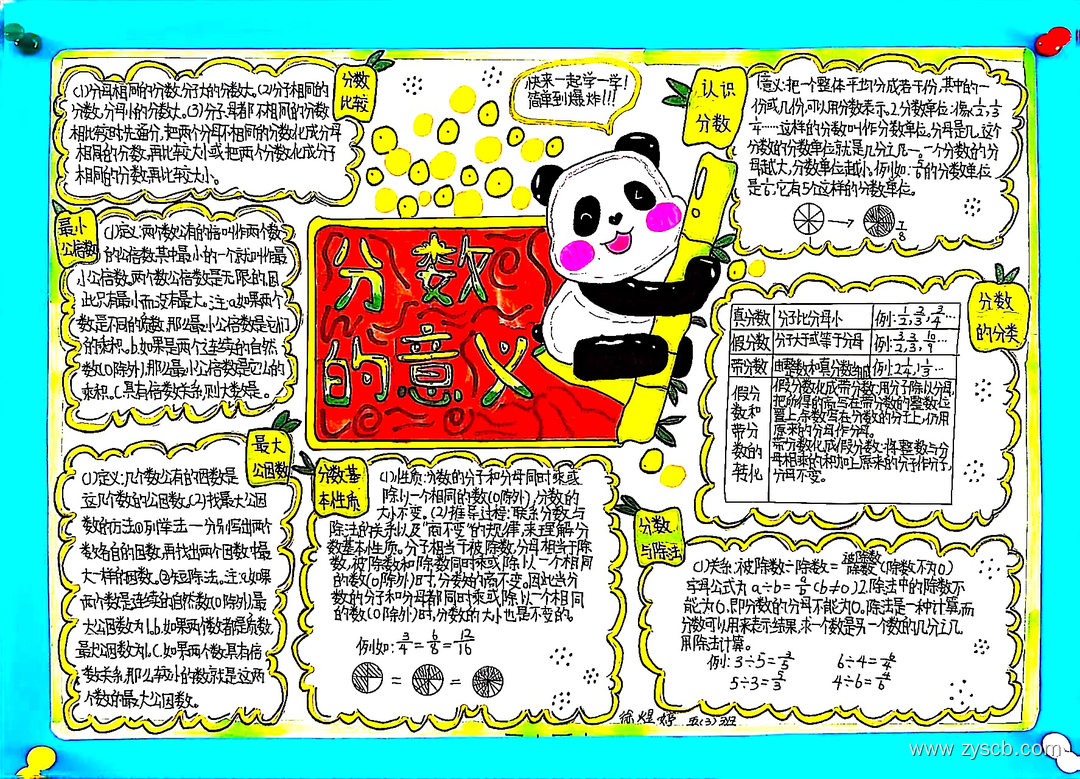 分数
比较
(1)分母相同的分数,分子大的分数大。(2)分子相同的
分数,分母小的分数大。(3)分子、分母都不相同的分数
相比较时,先通分,把两个分母不相同的分数化成分母
相同的分数,再比较大小或把两个分数化成分子
相同的分数再比较大小。
快来一起学一学!
简单到爆炸!!!
认识
分数
1.意义:把一个整体平均分成若干份,其中的一
份或几份,可以用分数表示。2.分数单位:像1/2,1/3
1/4……这样的分数叫作分数单位,分母是几,这个
分数的分数单位就是几分之一。一个分数的分
母越大,分数单位越小。例如:5/6的分数单位
是1/6,它有5个这样的分数单位。
→
最小
公倍数
(1)定义:两个数公有的倍叫作两个数
的公倍数,其中最小的一个就叫作最
小公倍数。两个数公倍数是无限的,因
此只有最小而没有最大。注:a.如果两个
数是不同的质数,那么最小公倍数是它们
的乘积。b.如果是两个连续的自然
数(0除外),那么最小公倍数是它么的
乘积。C.具有倍数关系,则大数是。
分数
的意义
分数
的分类
真分数 分子比分母小 例:1/2,2/3,3/4…
假分数 分子大于或等于分母 例:3/2,3/3,10/9…
带分数 由整数和真分数组成
假分
数和
带分
数的
转化
假分数化成带分数:用分子除以分母,
把所得的商写在带分数的整数位
置上,余数写在分数的分子上,仍用
原来的分母作分母。
带分数化成假分数:将整数与分
母相乘的和加上原来的分子作分子,
分母不变。
最大
公因数
(1)定义:几个数公有的因数是
这几个数的公因数。(2)找最大公因
数的方法:①列举法——分别写出两个
数各自的因数,再找出两个因数中最
大一样的因数。②短除法。注:a.如果
两个数是连续的自然数(0除外),最
大公因数为1。b.如果两个数都是质数,
最大公因数为1。C.如果两个数具有倍
数关系,那么较小的数就是这两
个数的最大公因数。
分数基
本性质
(1)性质:分数的分子和分母同时乘或
除以一个相同的数(0除外),分数的
大小不变。(2)推导过程:联系分数与
除法的关系以及"商不变"的规律,来理解分
数基本性质。分子相当于被除数,分母相当于除
数,被除数和除数同时乘或除以一个相同
的数(0除外)时,分数的商不变。因此当分
数的分子和分母都同时乘或除以一个相同
的数(0除外)时,分数的大小也是不变的。
例如:3/4=6/8=12/16
= =
分数
与除法
(1)关系:被除数÷除数=被除数/除数(除数不为0)
字母公式为a÷b=a/b(b≠0)2.除法中的除数不
能为0。即分数的分母不能为0。除法是一种计算,而
分数可以用来表示结果,求一个数是另一个数的几分之几,
用除法计算。
例:3÷5=3/5 6÷4=6/4
5÷3=5/3 4÷6=4/6
五(3)班
www.zyscb.com